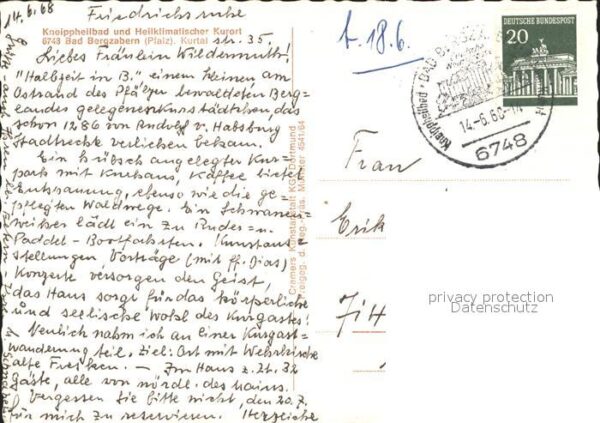 14.6.68
Friedrichsruhe
Kneippheilbad und Heilklimatischer Kurort
6748 Bad Bergzabern (Pfalz). Kurtal str. 35.
Liebes Fräulein Wildermuth!
"Halbzeit in B." einem kleinen am
Ostrand des Pfälzer bewaldeten Berg=
landes gelegenen Kurstädtchen, das
schon 1286 von Rudolf v. Habsburg
Stadtrechte verliehen bekam.
Ein hübsch angelegter Kur=
park mit Kurhaus, Kaffee bietet
Entspannung, ebenso wie die ge=
pflegten Waldwege. Ein Schwanen=
weiher lädt ein zu Ruder= u.
Paddel-Bootfahrten. Kunstaus=
stellungen Vorträge (mit ff. Dias)
Konzerte versorgen den Geist,
das Haus sorgt für das körperliche
und seelische Wohl des Kurgastes!
Neulich nahm ich an einer Kurgast=
wanderung teil. Ziel: Ort mit
alte Fresken. — Im Haus z. Zt. 32
Gäste, alle von nördl. des Mains.
Vergessen Sie bitte nicht, den 20.7.
für mich zu reservieren. Herzliche
Cramers Kunstanstalt KG, Dortmund
Freigeg. d. Reg. Präs. Münster 4541/64
b. 18.6.
Kneippheilbad · BAD BERGZABERN
14.-6.68
6748
DEUTSCHE BUNDESPOST
20
Frau
Erik
privacy protection
Datenschutz